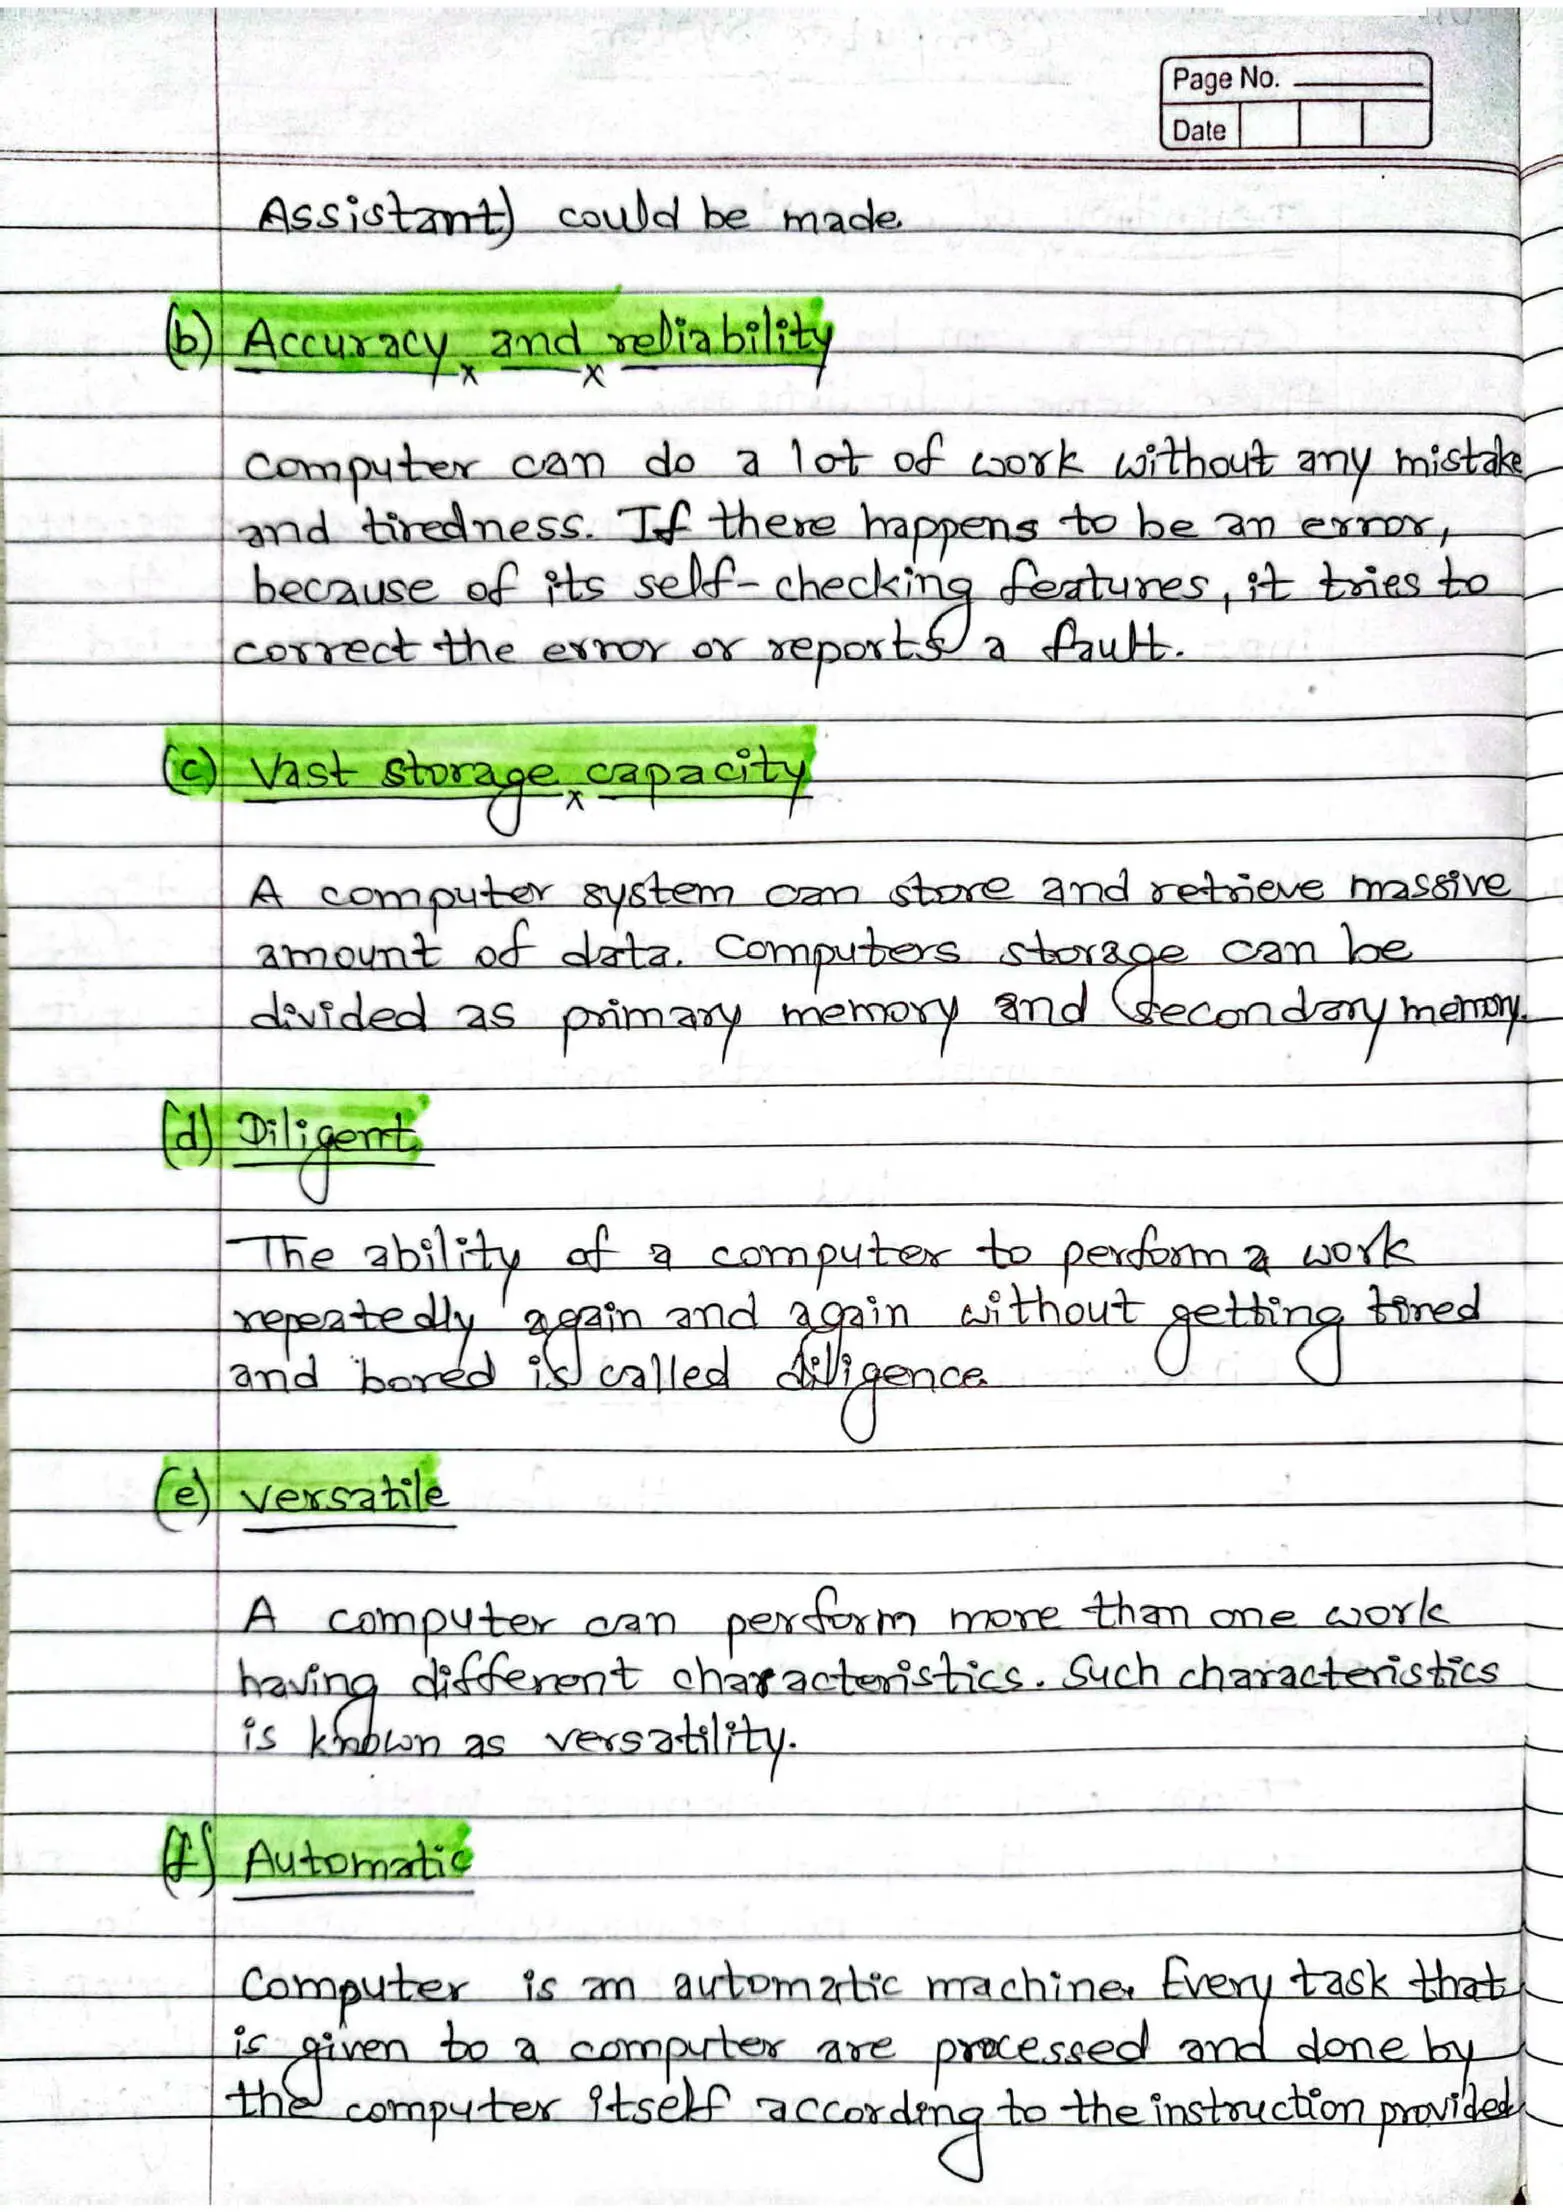 Page No.
Date
Assistant) could be made
(b) Accuracy and reliability
Computer can do a lot of work without any mistake
and tiredness. If there happens to be an error,
because of its self-checking features, it tries to
correct the error or reports a fault.
(c) Vast storage capacity
A computer system can store and retrieve massive
amount of data. Computers storage can be
divided as primary memory and secondary memory.
(d) Diligent
The ability of a computer to perform a work
repeatedly again and again without getting tired
and bored is called diligence
(e) versatile
A computer can perform more than one work
having different characteristics. Such characteristics
is known as versatility.
(f) Automatic
Computer is an automatic machine. Every task that
is given to a computer are processed and done by
the computer itself according to the instruction provided